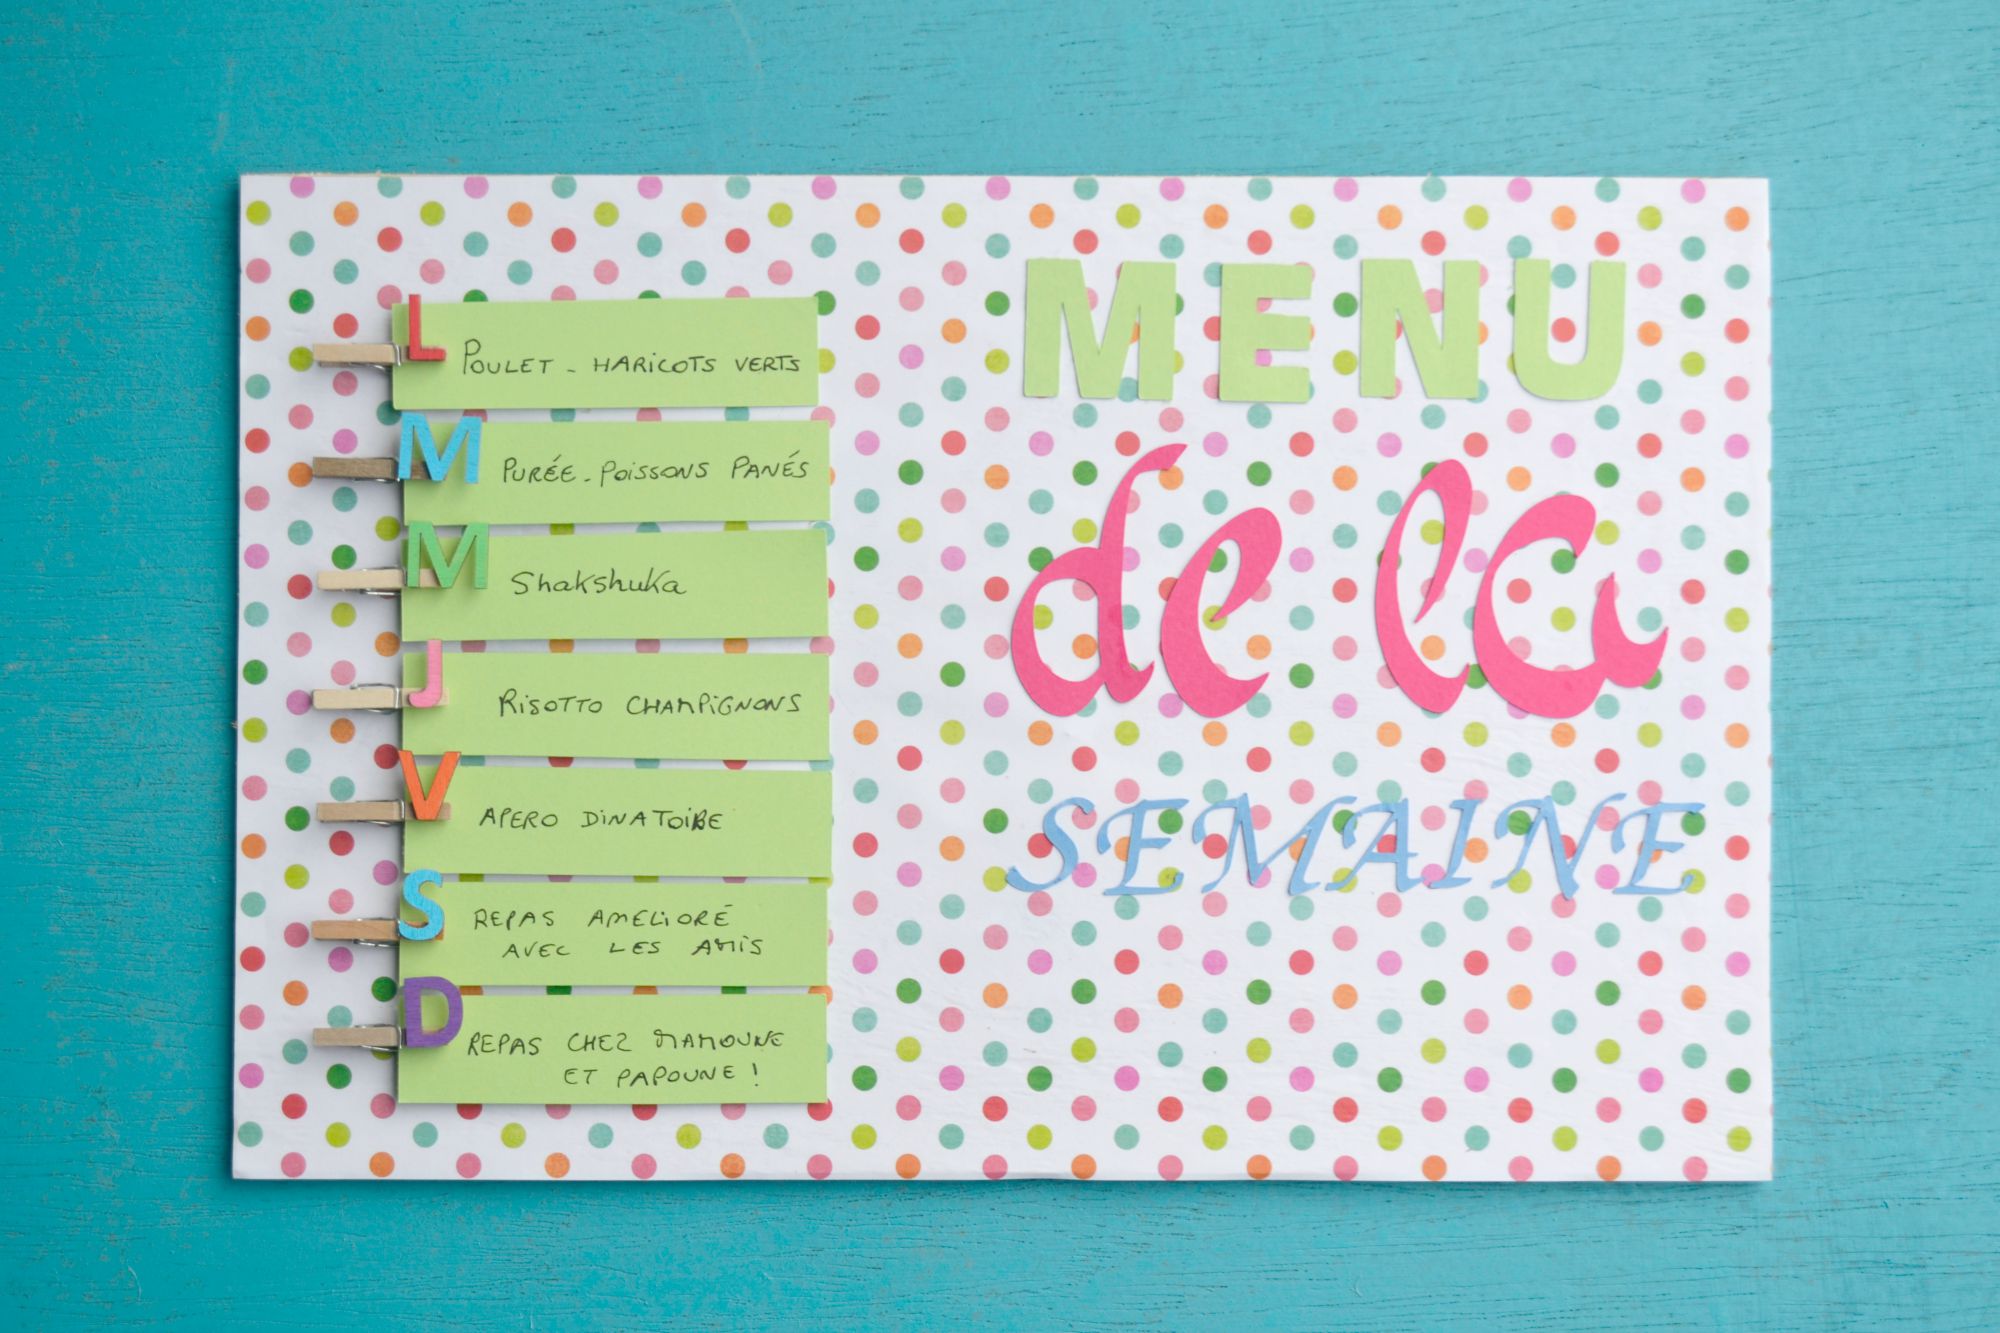 L POULET - HARICOTS VERTS
M PURÉE - POISSONS PANÉS
M Shakshuka
J RISOTTO CHAMPIGNONS
V APERO DINATOIRE
S REPAS AMELIORÉ
AVEC LES AMIS
D REPAS CHEZ MAMOUNE
ET PAPOUNE !
MENU
de la
SEMAINE